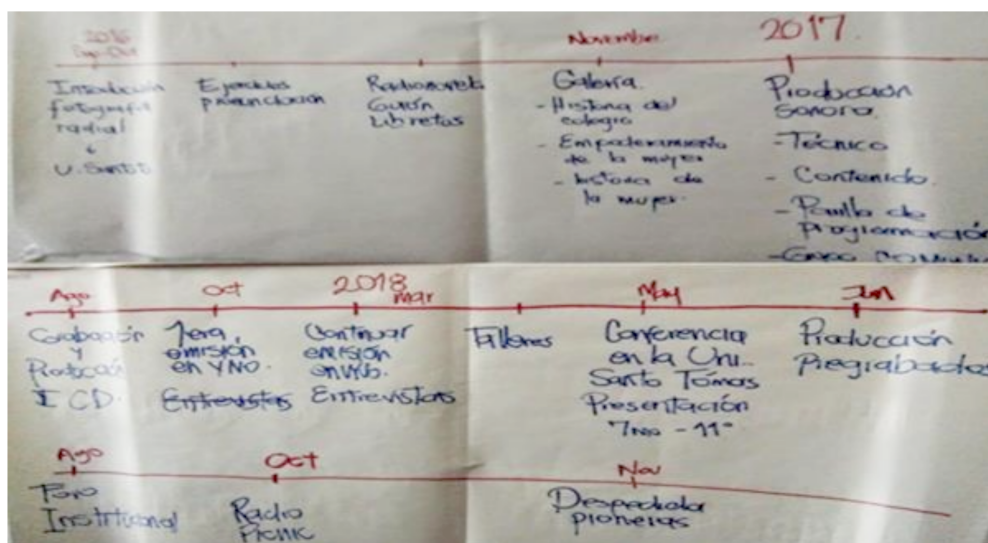 2016
Ago-Oct
Noviembre
2017.
Introducción
fotografía
radial
U. Santo
Ejercicios
pronunciación
Radionovela
Guión
Libretos
Galería.
- Historia del
colegio
- Empoderamiento
de la mujer
- historia de
la mujer.
Producción
Sonora.
- Técnico
- Contenido.
- Parrilla de
Programación
Ago
Oct
2018
mar
May
Jun
Grabación
y
Producción
I CD.
1era
emisión
en YNO.
Entrevistas
Continuar
emisión
Entrevistas
Talleres
Conferencia
en la Uni..
Santo Tómas
Presentación
7mo - 11°
Producción
Pregrabados
Ago
Oct
Nov
Foro
Institucional
Radio
Picnic
Despedida
pioneras